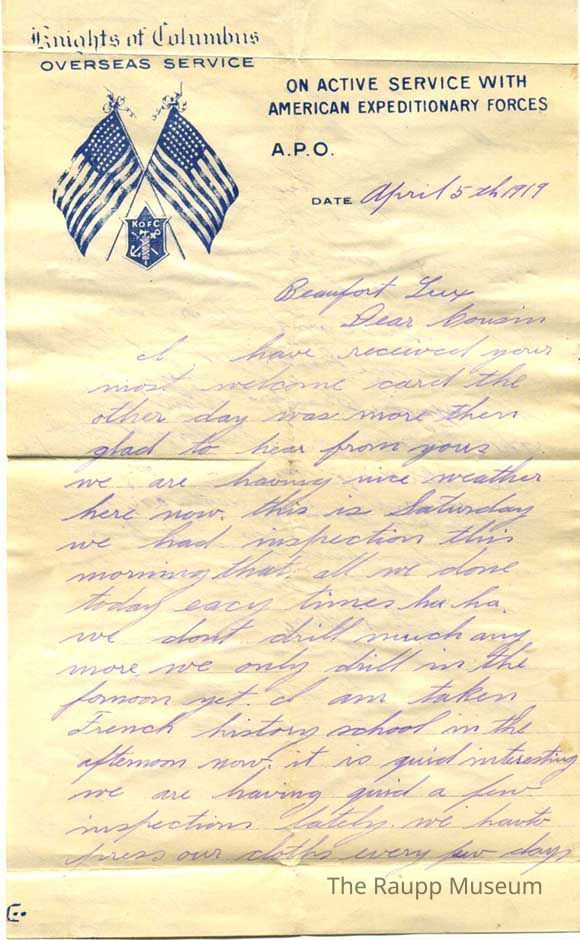 Knights of Columbus
OVERSEAS SERVICE
ON ACTIVE SERVICE WITH
AMERICAN EXPEDITIONARY FORCES
A.P.O.
DATE April 5th 1919
K OF C
Beaufort Lux
Dear Cousin
I have received your
most welcome card the
other day was more then
glad to hear from yous
we are having nice weather
here now. this is Saturday
we had inspection this
morning that. all we done
today eacy times ha ha.
we dont drill much any
more. we only drill in the
fornoon yet. I am taken
French history school in the
afternoon now. it is quid interesting
we are having quid a few
inspections lately. we hav to
press our cloths every few days
The Raupp Museum